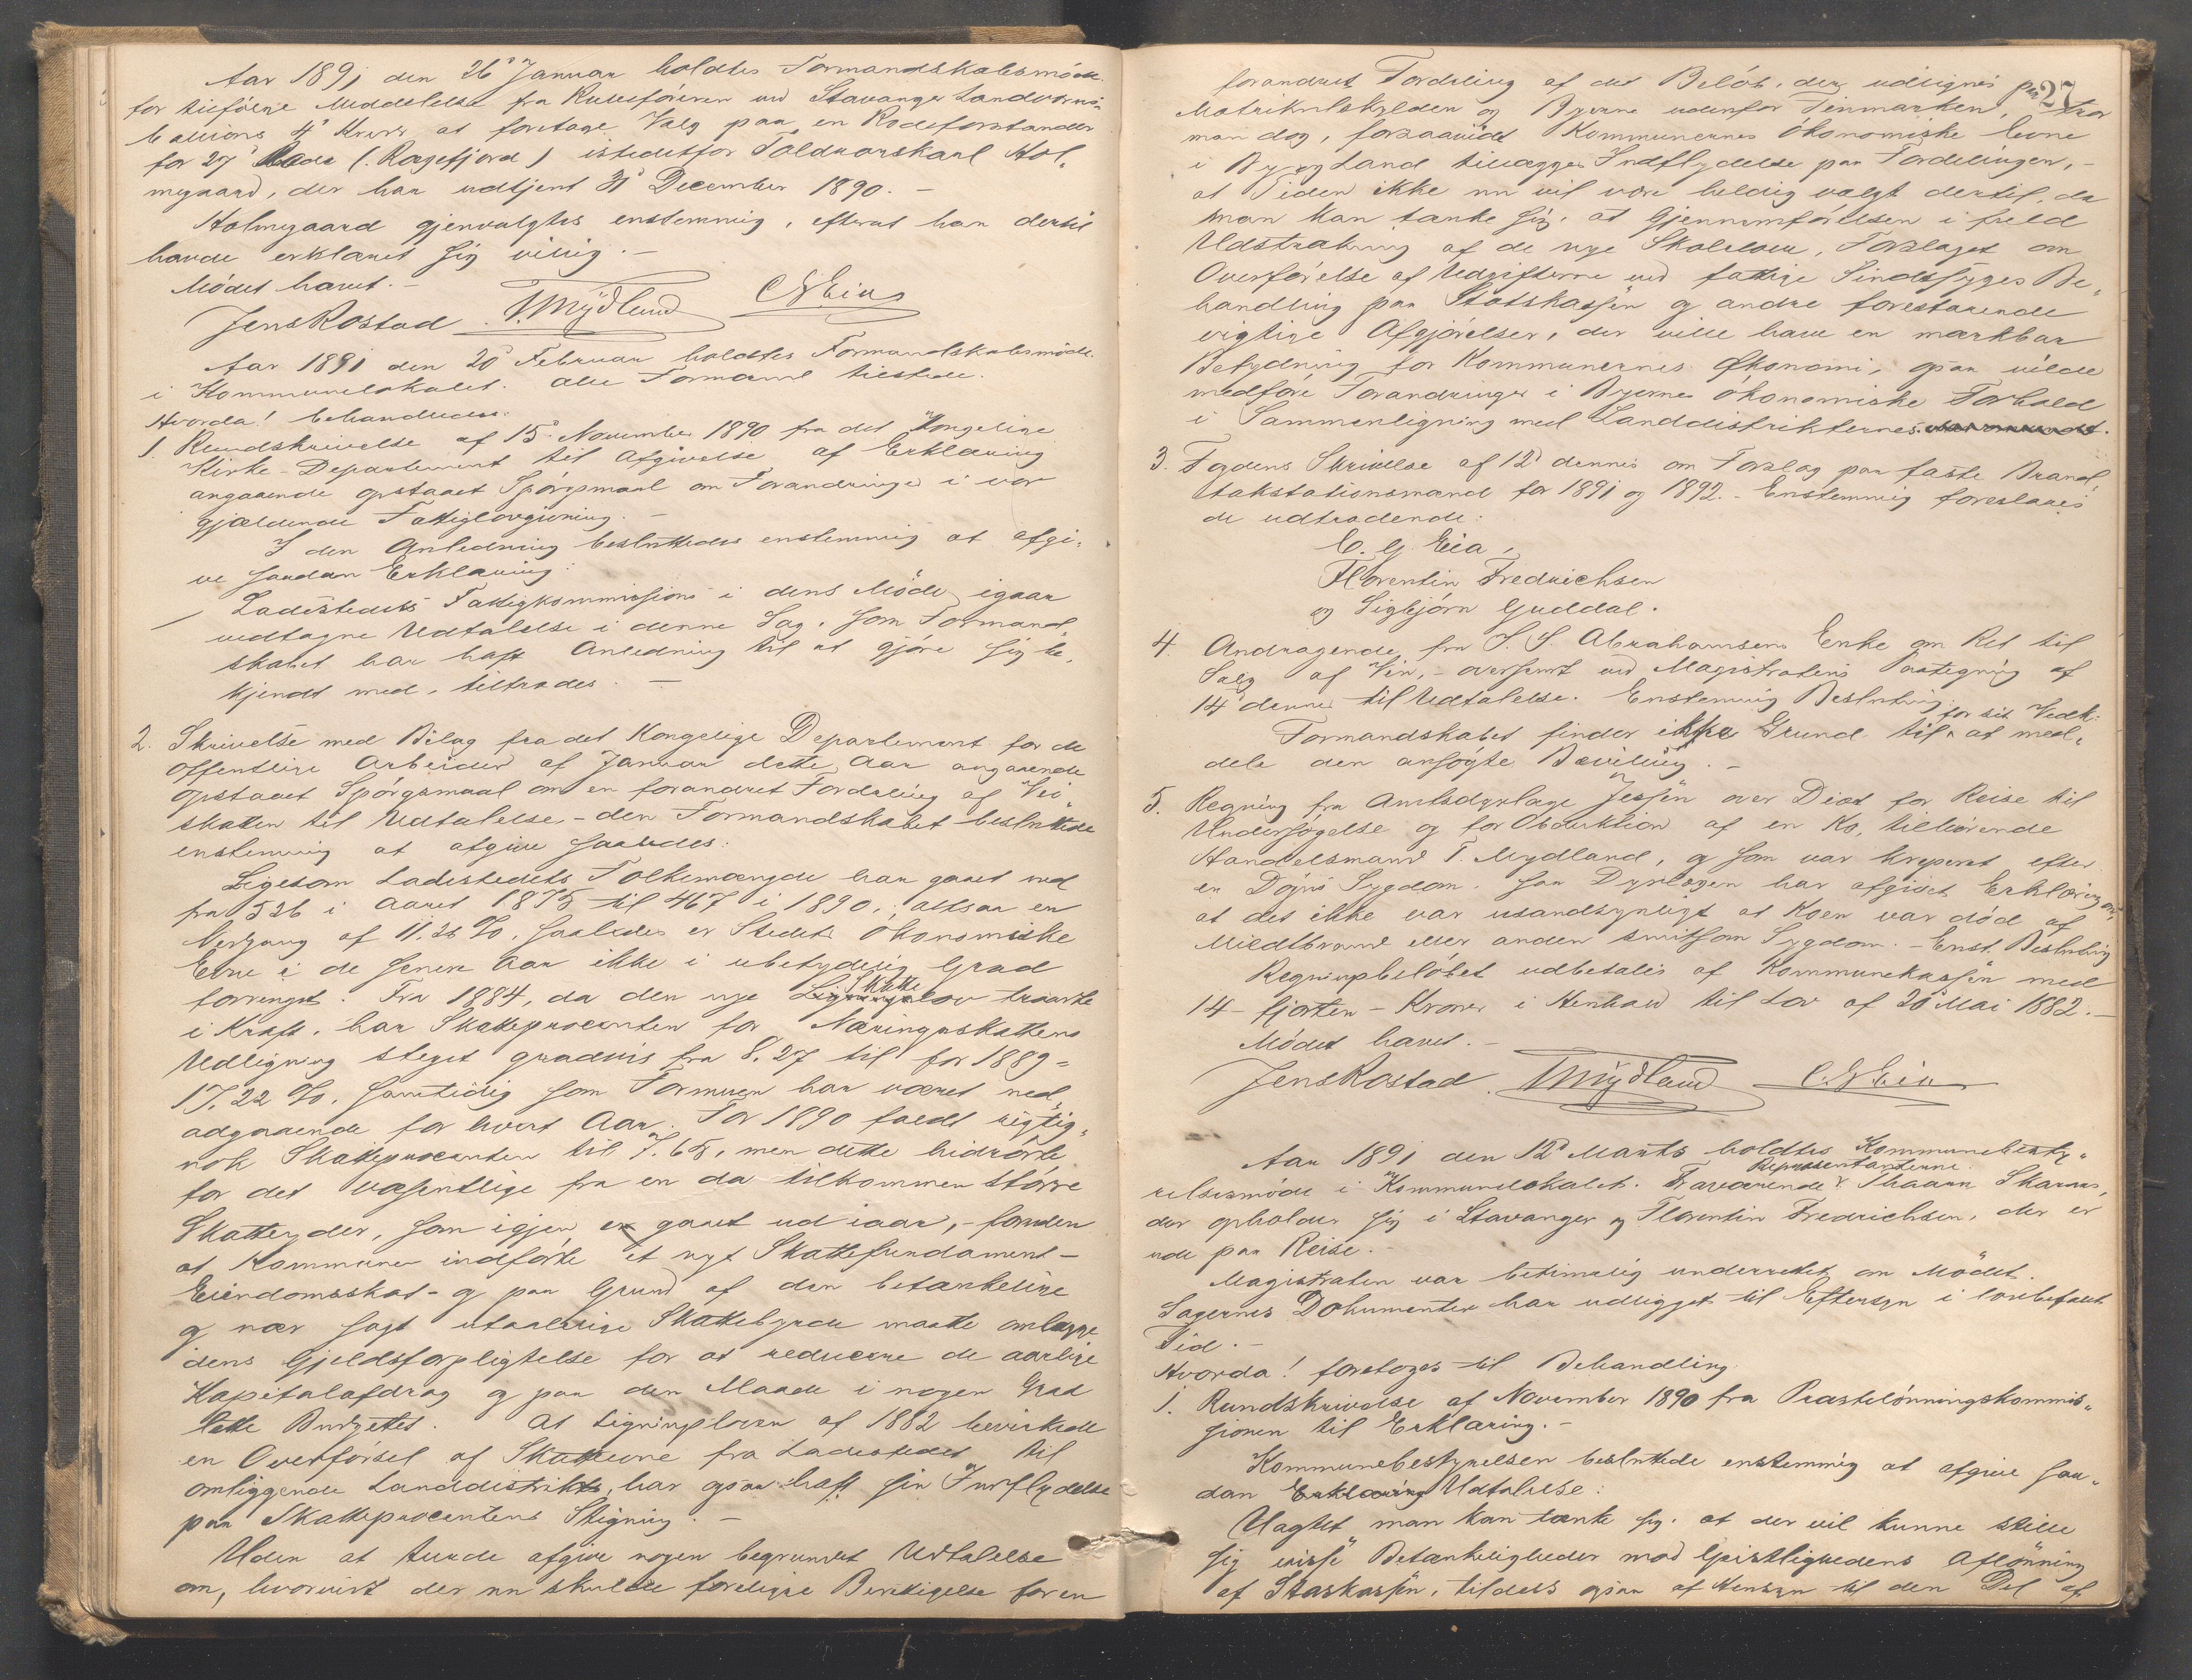 Aar 1891 den 26' Januar holdtes Formandskabsmöde
for tilfölge Meddelelse fra Rulleföreren ved Stavanger Landværns
bataljons 4' Kreds at foretage Valg paa en Rodeforstander
for 27' Rode (Rægefjord) istedetfor Toldvorskarl Hol„
megaard, der har udtjent 31' December 1890. –
Holmegaard gjenvalgtes enstemmig, efterat han dertil
havde erklæret sig villig. –
Mödet hævet. –
Jens Rostad T. Mydland C G Eia
Aar 1891 den 20' Februar holdtes Formandskabsmöde
i Kommunelokalet. Alle Formænd tilstede.
Hvorda! behandledes:
1. Rundskrivelse af 15' November 1890 fra det Kongelige
Kirke-Departement til Afgivelse af Erklæring
angaaende opstaaet Spörgsmaal om Forandringer i vor
gjældende Fattiglovgivning. –
I den Anledning besluttedes enstemmig at afgi„
ve saadan Erklæring:
Ladestedets Fattigkommissions i dens Möde igaar
vedtagne Udtalelse i denne Sag, som Formand„
skabet har haft Anledning til at gjöre sig be„
kjendt med, tiltrædes. –
2. Skrivelse med Bilag fra det Kongelige Departement for de
offentlige Arbeider af Januar dette Aar angaaende
opstaaet Spörgsmaal om en forandret Fordeling af Vei„
skatten til Udtalelse, – den Formandskabet besluttede
enstemmig at afgive saaledes:
Ligesom Ladestedets Folkemængde har gaaet ned
fra 526 i Aaret 1875 til 467 i 1890, altsaa en
Nedgang af 11.26 %, saaledes er Stedets ökonomiske
Evne i de senere Aar ikke i ubetydelig Grad
forringet. Fra 1884, da den nye Skatte lov traadte
i Kraft, har Skatteprocenten for Næringsskattens
Udligning steget gradvis fra 8.27 til for 1889 =
17.22 %, samtidig som Formuen har været ned„
adgaaende for hvert Aar. For 1890 faldt rigtig„
nok Skatteprocenten til 7.68, men dette hidrörte
for det væsentlige fra en da tilkommen större
Skatteyder, som igjen er gaaet ud iaar, – foruden
at Kommunen indförte et nyt Skattefundament –
Eiendomsskat – og paa Grund af den betænkelige
og nær sagt utaalelige Skattebyrde maatte omlægge
dens Gjeldsforpligtelse for at reducere de aarlige
Kapitalafdrag og paa den Maade i nogen Grad
lette Budgettet. At Ligningsloven af 1882 bevirkede
en Overförsel af Skatteevne fra Ladestedet til
omliggende Landdistrikt, har ogsaa haft sin Indflydelse
paa Skatteprocentens Stigning. –
Uden at turde afgive nogen begrundet Udtalelse
om, hvorvidt der nu skulde foreligge Berettigelse for en
27
forandret Fordeling af det Belöb, der udlignes paa
Matrikulskylden og Byerne udenfor Finmarken, tror
man dog, forsaavidt Kommunernes ökonomiske Evne
i By og Land tillægges Indflydelse paa Fordelingen, –
at Tiden ikke nu vil være heldig valgt dertil, da
man kan tænke sig, at Gjennemförelsen i fuld
Udstrækning af de nye Skolelove, Forslaget om
Overförelse af Udgifterne ved fattige Sindssyges Be„
handling paa Statskassen og andre forestaaende
vigtige Afgjörelser, der ville have en mærkbar
Betydning for Kommunernes Ökonomi, ogsaa vilde
medföre Forandringer i Byernes ökonomiske Forhold
i Sammenligning med Landdistrikternes.
3. Fogdens Skrivelse af 12' dennes om Forslag paa faste Brand„
takstationsmænd for 1891 og 1892. – Enstemmig foreslaaes
de udtrædende:
C. G Eia,
Florentin Fredrichsen
og Sigbjörn Guddal.
4. Andragende fra S. S. Abrahamsens Enke om Ret til
Salg af Vin, – oversendt ved Magistratens Paategning af
14' dennes til Udtalelse. Enstemmig Beslutning
Formandskabet finder ikke Grund til for sit Vedk: at med„
dele den ansögte Bevilling. –
5. Regning fra Amtsdyrlæge Jessen over Diæt for Reise til
Undersögelse og for Obduktion af en Ko, tilhörende
Handelsmand T. Mydland, og som var kreperet efter
en Dögns Sygdom. Som Dyrlægen har afgivet Erklæring om,
at det ikke var usandsynligt at Koen var död af
Miltbrand eller anden smitsom Sygdom. – Enst. Beslutning
Regningsbelöbet udbetales af Kommunekassen med
14 – fjorten – Kroner i Henhold til Lov af 20' Mai 1882. –
Mödet hævet. –
Jens Rostad T. Mydland C. G Eia
Aar 1891 den 12' Marts holdtes Kommunebesty„
relsesmöde i Kommunelokalet. Fraværende Repræsentanterne Skaarn,
der opholder sig i Stavanger og Florentin Fredrichsen, der er
ude paa Reise. –
Magistraten var betimelig underrettet om Mödet.
Sagernes Dokumenter har udligget til Eftersyn i lovbefalet
Tid. –
Hvorda! foretoges til Behandling
1. Rundskrivelse af November 1890 fra Præstelönningskommis„
sionen til Erklæring. –
Kommunebestyrelsen besluttede enstemmig at afgive saa„
dan Udtalelse:
Uagtet man kan tænke sig, at der vil kunne stille
sig visse Betænkeligheder mod Geistlighedens Aflönning
af Staskassen, tildels ogsaa af Hensyn til den Del af